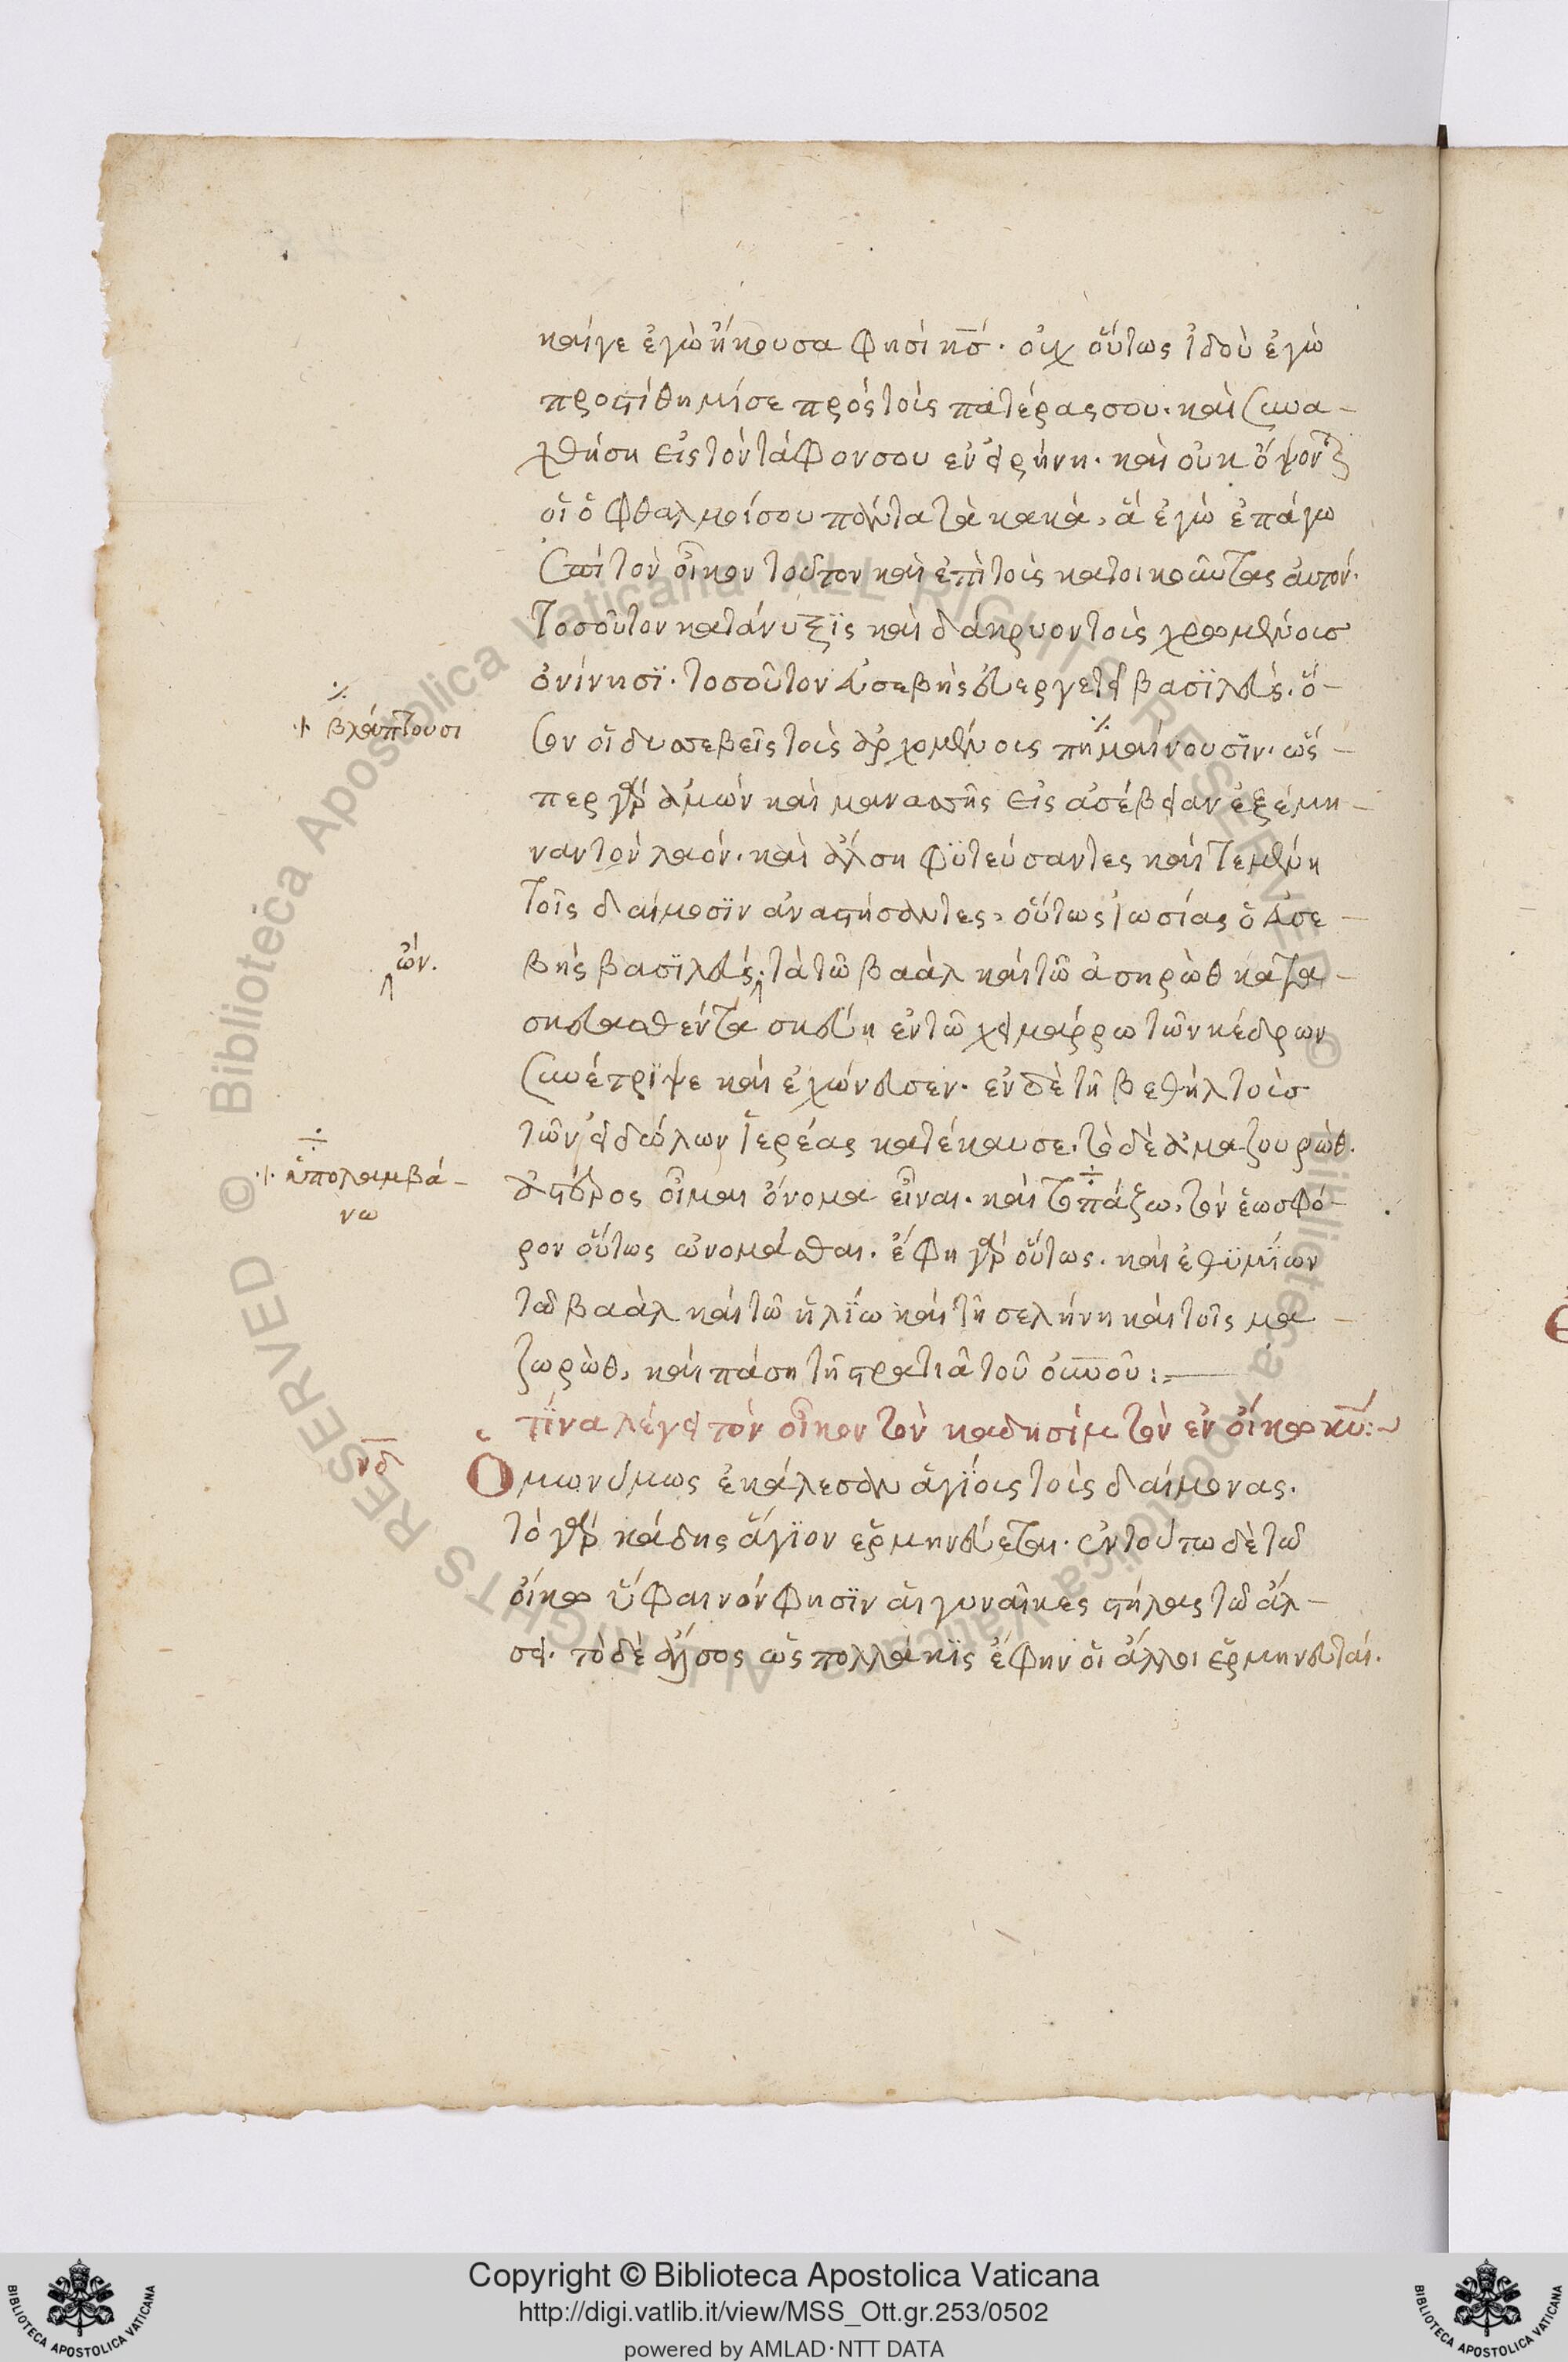 καίγε ἐγὼ ἤκουσα φησὶ κ̅ς̅. οὐχ οὕτως ἰδοὺ ἐγὼ
προστίθημί σε πρὸς τοὺς πατέρας σου. καὶ συνα-
χθήση εἰς τὸν τάφον σου ἐν εἰρήνη. καὶ οὐκ ὄψονται
οἱ ὀφθαλμοί σου πάντα τὰ κακὰ, ἃ ἐγὼ ἐπάγω
ἐπὶ τὸν οἶκον τοῦτον καὶ ἐπὶ τοὺς κατοικοῦντας αὐτόν.
τοσοῦτον κατάνυξϊς καὶ δάκρυον τοὺς χρωμένουσ
ὀνίνησϊ. τοσοῦτον εὐσεβὴς εὐεργετεῖ βασϊλεύς. ὅ-
σον οἱ δυσσεβεῖς τοὺς ἀρχομένους πημαίνουσϊν. ὥσ-
÷ βλάπτουσι
περ γὰρ ἀμὼν καὶ μανασσῆς εἰς ἀσέβειαν ἐξέμη-
ναν τὸν λαόν. καὶ ἄλση φϋτεύσαντες καὶ τεμένη
τοῖς δαίμοσϊν ἀναστήσαντες, οὕτως ἰωσίας ὁ εὐσε-
βὴς βασϊλεύς. τὰ τῶ βαὰλ καὶ τῶ ἀσηρὼθ κατα-
ὤν.
σκευασθέντα σκεύη ἐν τῶ χειμάρρω τῶν κέδρων
συνέτρϊψε καὶ ἐχώνευσεν. ἐν δὲ τῆ βεθὴλ τοὺσ
τῶν εἰδώλων ἱερέας κατέκαυσε. τὸ δὲ μαζουρὼθ.
ἀστέρος οἶμαι ὄνομα εἶναι. καὶ τοπάζω, τὸν ἑωσφό-
÷ ὑπολαμβά-
νω
ρον οὕτως ὠνομάσθαι. ἔφη γὰρ οὕτως. καὶ ἐθϋμΐων
τῶ βαὰλ καὶ τῶ ἡλΐω καὶ τῆ σελήνη καὶ τοῖς μα-
ζωρὼθ, καὶ πάση τῆ στρατιᾶ τοῦ οὐνοῦ:—
τίνα λέγει τὸν οἶκον τὸν καδησὶμ τὸν ἐν οἴκω κ̅υ̅:~
ν̅δ̅ Ὁμωνύμως ἐκάλεσαν ἁγίους τοὺς δαίμονας.
τὸ γὰρ κάδης ἅγϊον ἑρμηνεύεται. ἐν τούτω δὲ τῶ
οἴκω ὕφαινόν φησϊν αἱ γυναῖκες στήλας τῶ ἄλ-
σει. τὸ δὲ ἄλσος ὡς πολλάκϊς ἔφην οἱ ἄλλοι ἑρμηνευταί.
Copyright © Biblioteca Apostolica Vaticana
http://digi.vatlib.it/view/MSS_Ott.gr.253/0502
powered by AMLAD·NTT DATA